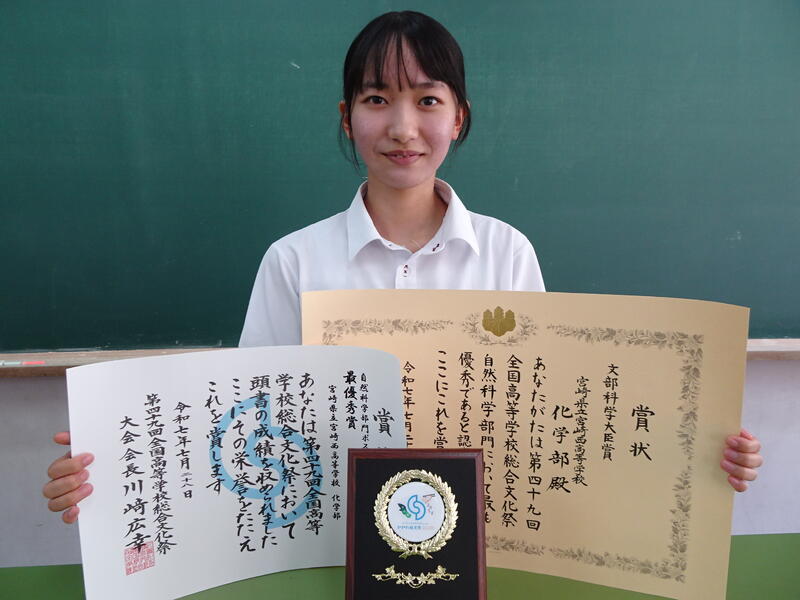 賞状
文部科学大臣賞
宮崎県立宮崎西高等学校
化学部殿
あなたがたは第四十九回
全国高等学校総合文化祭
自然科学部門において最も
優秀であると認
ここにこれを賞
令和七年七月二
賞
自然科学部門ポス
最優秀賞
宮崎県立宮崎西高等学校 化学部
あなたは第四十九回全国高等
学校総合文化祭において
頭書の成績を収められました
ここにその栄誉をたたえ
これを賞します
令和七年七月二八日
第四九回全国高等学校総合文化祭
大会会長 川﨑広幸
かがわ総文祭2025